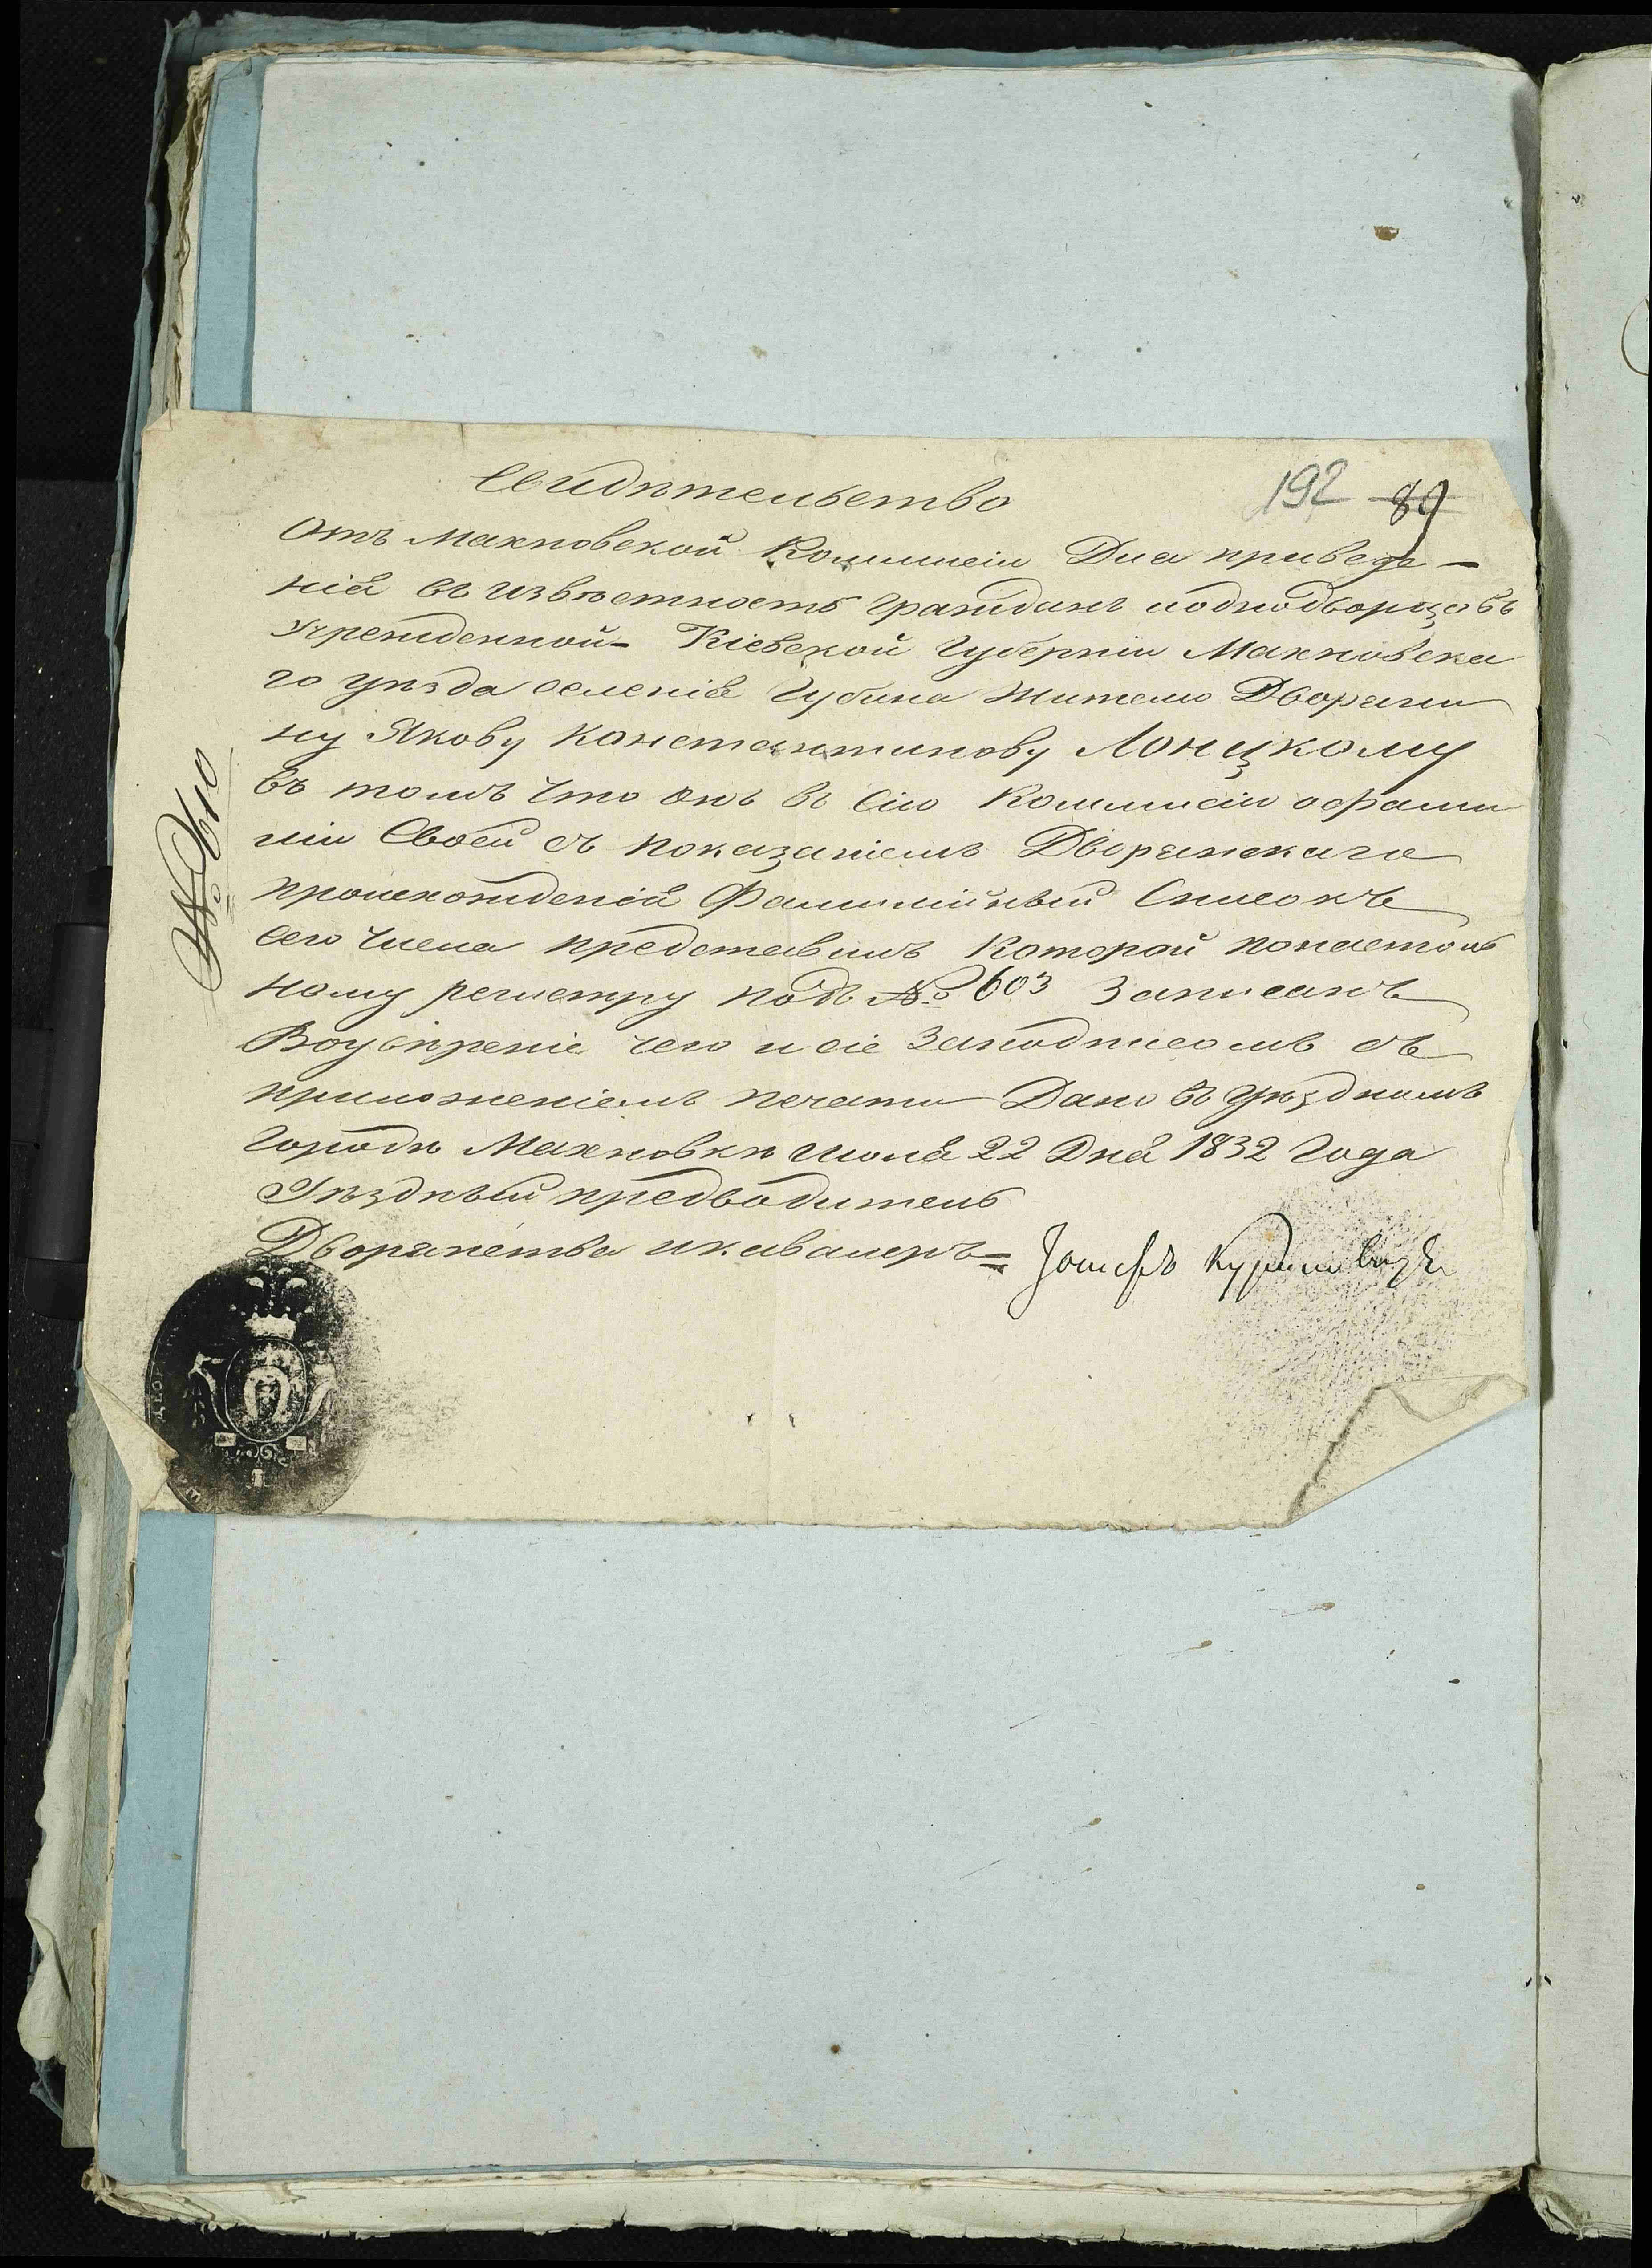 Свидѣтельство
192 89
Отъ Махновской Коммисіи Для приведе-
нія въ извѣстность гражданъ иоднодворцовъ
учрежденной- Кіевской Губерніи Махновска
го уѣзда селенія Губина Жителю Дворяни
ну Якову Константинову Лонцкому
въ томъ что онъ въ сію Коммисію офами
ліи Своей съ показаніемъ Дворянскаго
происхожденія Фамилійный Списокъ
сего числа представилъ Которой понастоль
ному регистру подъ № 603 Записанъ
Воувѣреніе чего и сіе Заподписомъ съ
приложеніемъ печати Дано въ Уѣздномъ
городѣ Махновкѣ июля 22 Дня 1832 Года
Уѣздный предводитель
Дворянства икавалеръ=
Іосифъ
№ 610